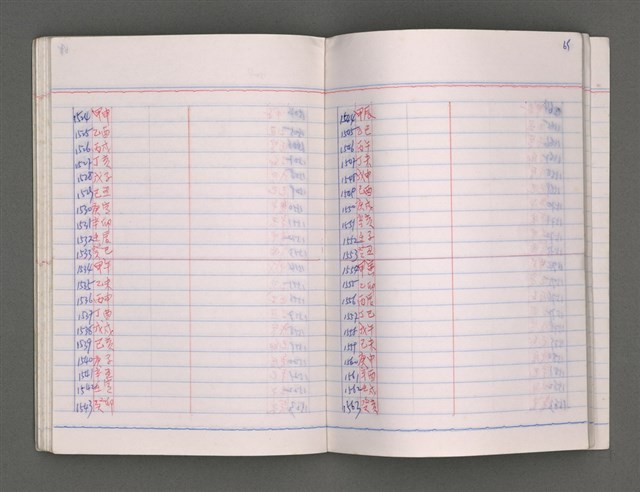 1524 甲申
1525 乙酉
1526 丙戌
1527 丁亥
1528 戊子
1529 己丑
1530 庚寅
1531 辛卯
1532 壬辰
1533 癸巳
1534 甲午
1535 乙未
1536 丙申
1537 丁酉
1538 戊戌
1539 己亥
1540 庚子
1541 辛丑
1542 壬寅
1543 癸卯
65
1544 甲辰
1545 乙巳
1546 丙午
1547 丁未
1548 戊申
1549 己酉
1550 庚戌
1551 辛亥
1552 壬子
1553 癸丑
1554 甲寅
1555 乙卯
1556 丙辰
1557 丁巳
1558 戊午
1559 己未
1560 庚申
1561 辛酉
1562 壬戌
1563 癸亥